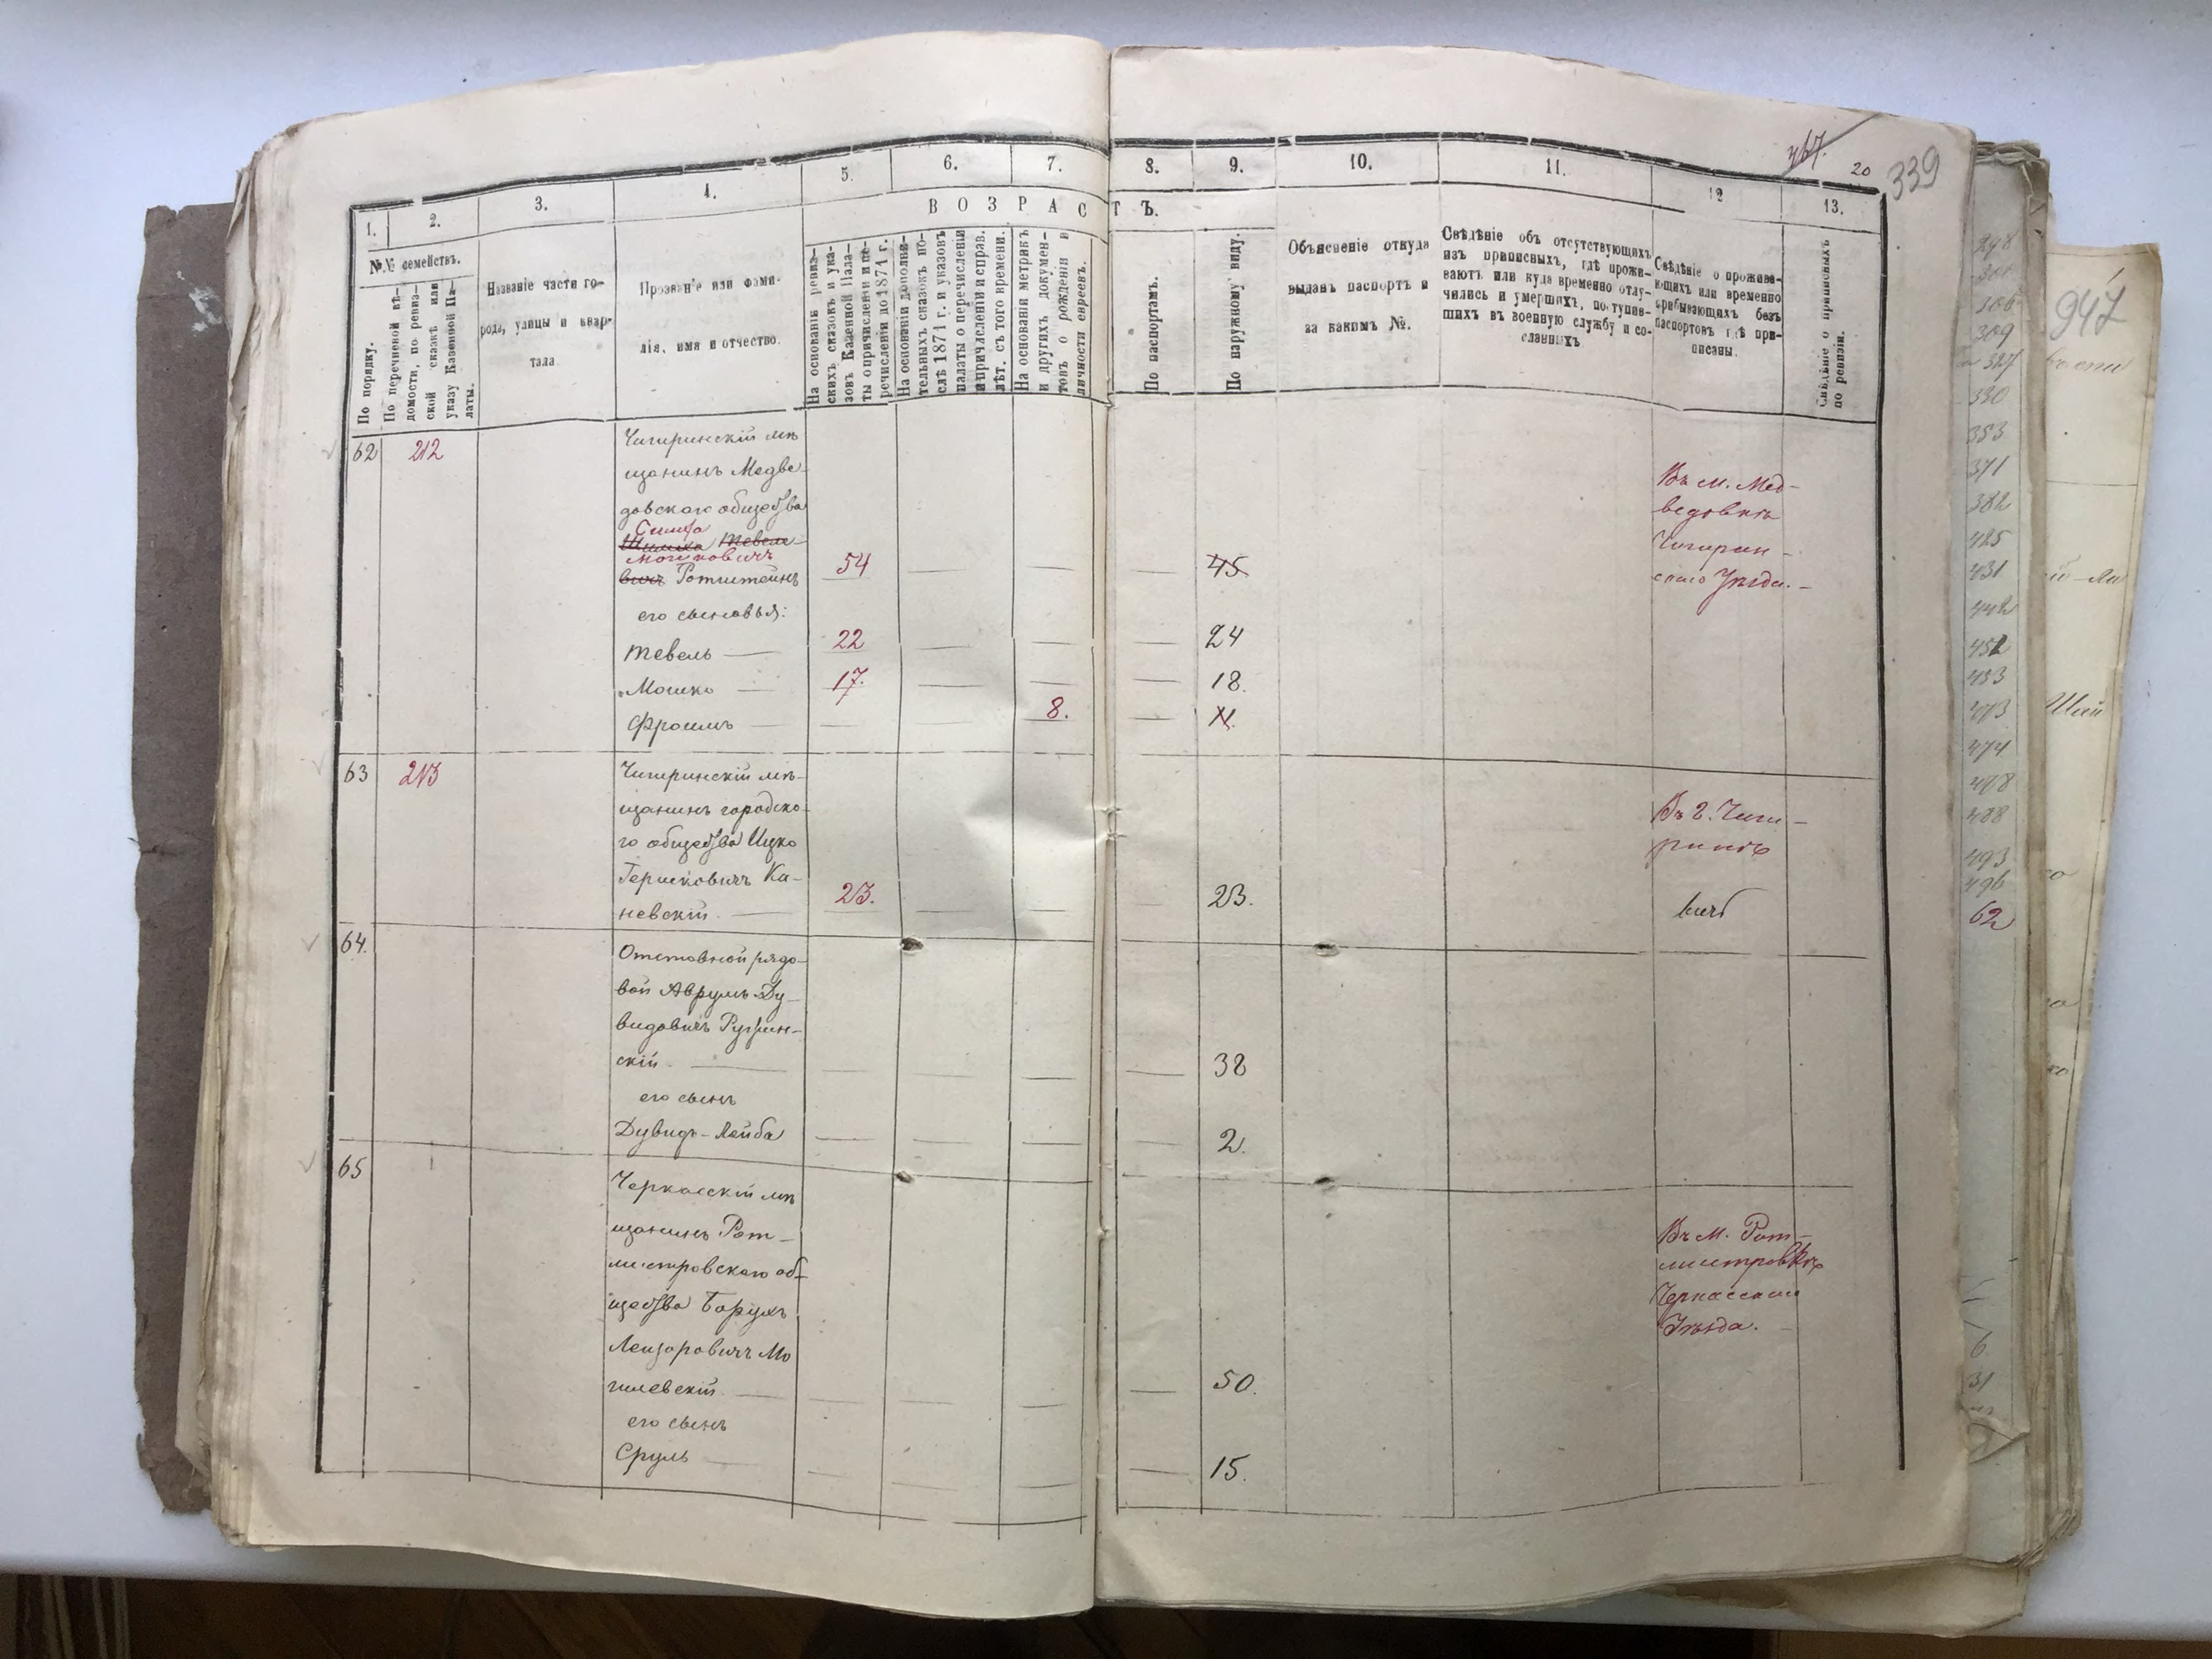 467.
20
339
1.
2.
3.
4.
5.
6.
7.
8.
9.
10.
11.
12
13.
ВОЗРАСТЪ.
№№ семействъ.
По порядку.
По перечневой вѣ-
домости, по ревиз-
ской сказкѣ или
указу Казенной Па-
латы.
Названіе части го-
рода, улицы и квар-
тала
Прозваніе или фами-
лія, имя и отчество.
На основаніи ревиз-
скихъ сказокъ и ука-
зовъ Казенной Пала-
ты о причисленіи и пе-
речисленіи до 1874 г.
На основаніи дополни-
тельныхъ сказокъ по-
слѣ 1874 г. и указовъ
палаты о перечисленіи
и причисленіи и справ.
лѣт. съ того времени.
На основаніи метрикъ
и другихъ докумен-
товъ о рожденіи и
личности евреевъ.
По паспортамъ.
По наружному виду.
Объясненіе откуда
выданъ паспортъ и
за какимъ №.
Свѣдѣніе объ отсутствующихъ
изъ приписныхъ, гдѣ прожи-
ваютъ или куда временно отлу-
чились и умершихъ, поступив-
шихъ въ военную службу и со-
сланныхъ
Свѣдѣніе о прожива-
ющихъ или временно
прибывающихъ безъ
паспортовъ гдѣ при-
писаны.
Свѣдѣніе о приписныхъ
по ревизіи.
62
212
Чигиринскій мѣ
щанинъ Медве-
довскаго общества
Симха
Шимха Тевеле-
Мошковичъ
вичъ Ротштейнъ
54
45
его сыновья:
Тевель
22
24
Мошко
17.
18.
Фроимъ
8.
11.
Въ м. Мед-
ведовкѣ
Чигирин-
скаго Уѣзда.
63
213
Чигиринскій мѣ-
щанинъ городско-
го общества Ицко
Гершковичъ Ка-
невскій.
23.
23.
Въ г. Чиги-
ринѣ
64.
Отставной рядо-
вой Аврумъ Ду-
видовичъ Рузин-
скій
38
его сынъ
Дувидъ-Лейба
2.
65
Черкасскій мѣ
щанинъ Рот-
мистровскаго об-
щества Борухъ
Лейзоровичъ Мо
гилевскій.
50.
его сынъ
Сруль
15.
Въ м. Рот-
мистровкѣ
Черкасскаго
Уѣзда.
947
309
330
353
371
382
425
431
448
452
453
473
474
488
493
496
62
6
31